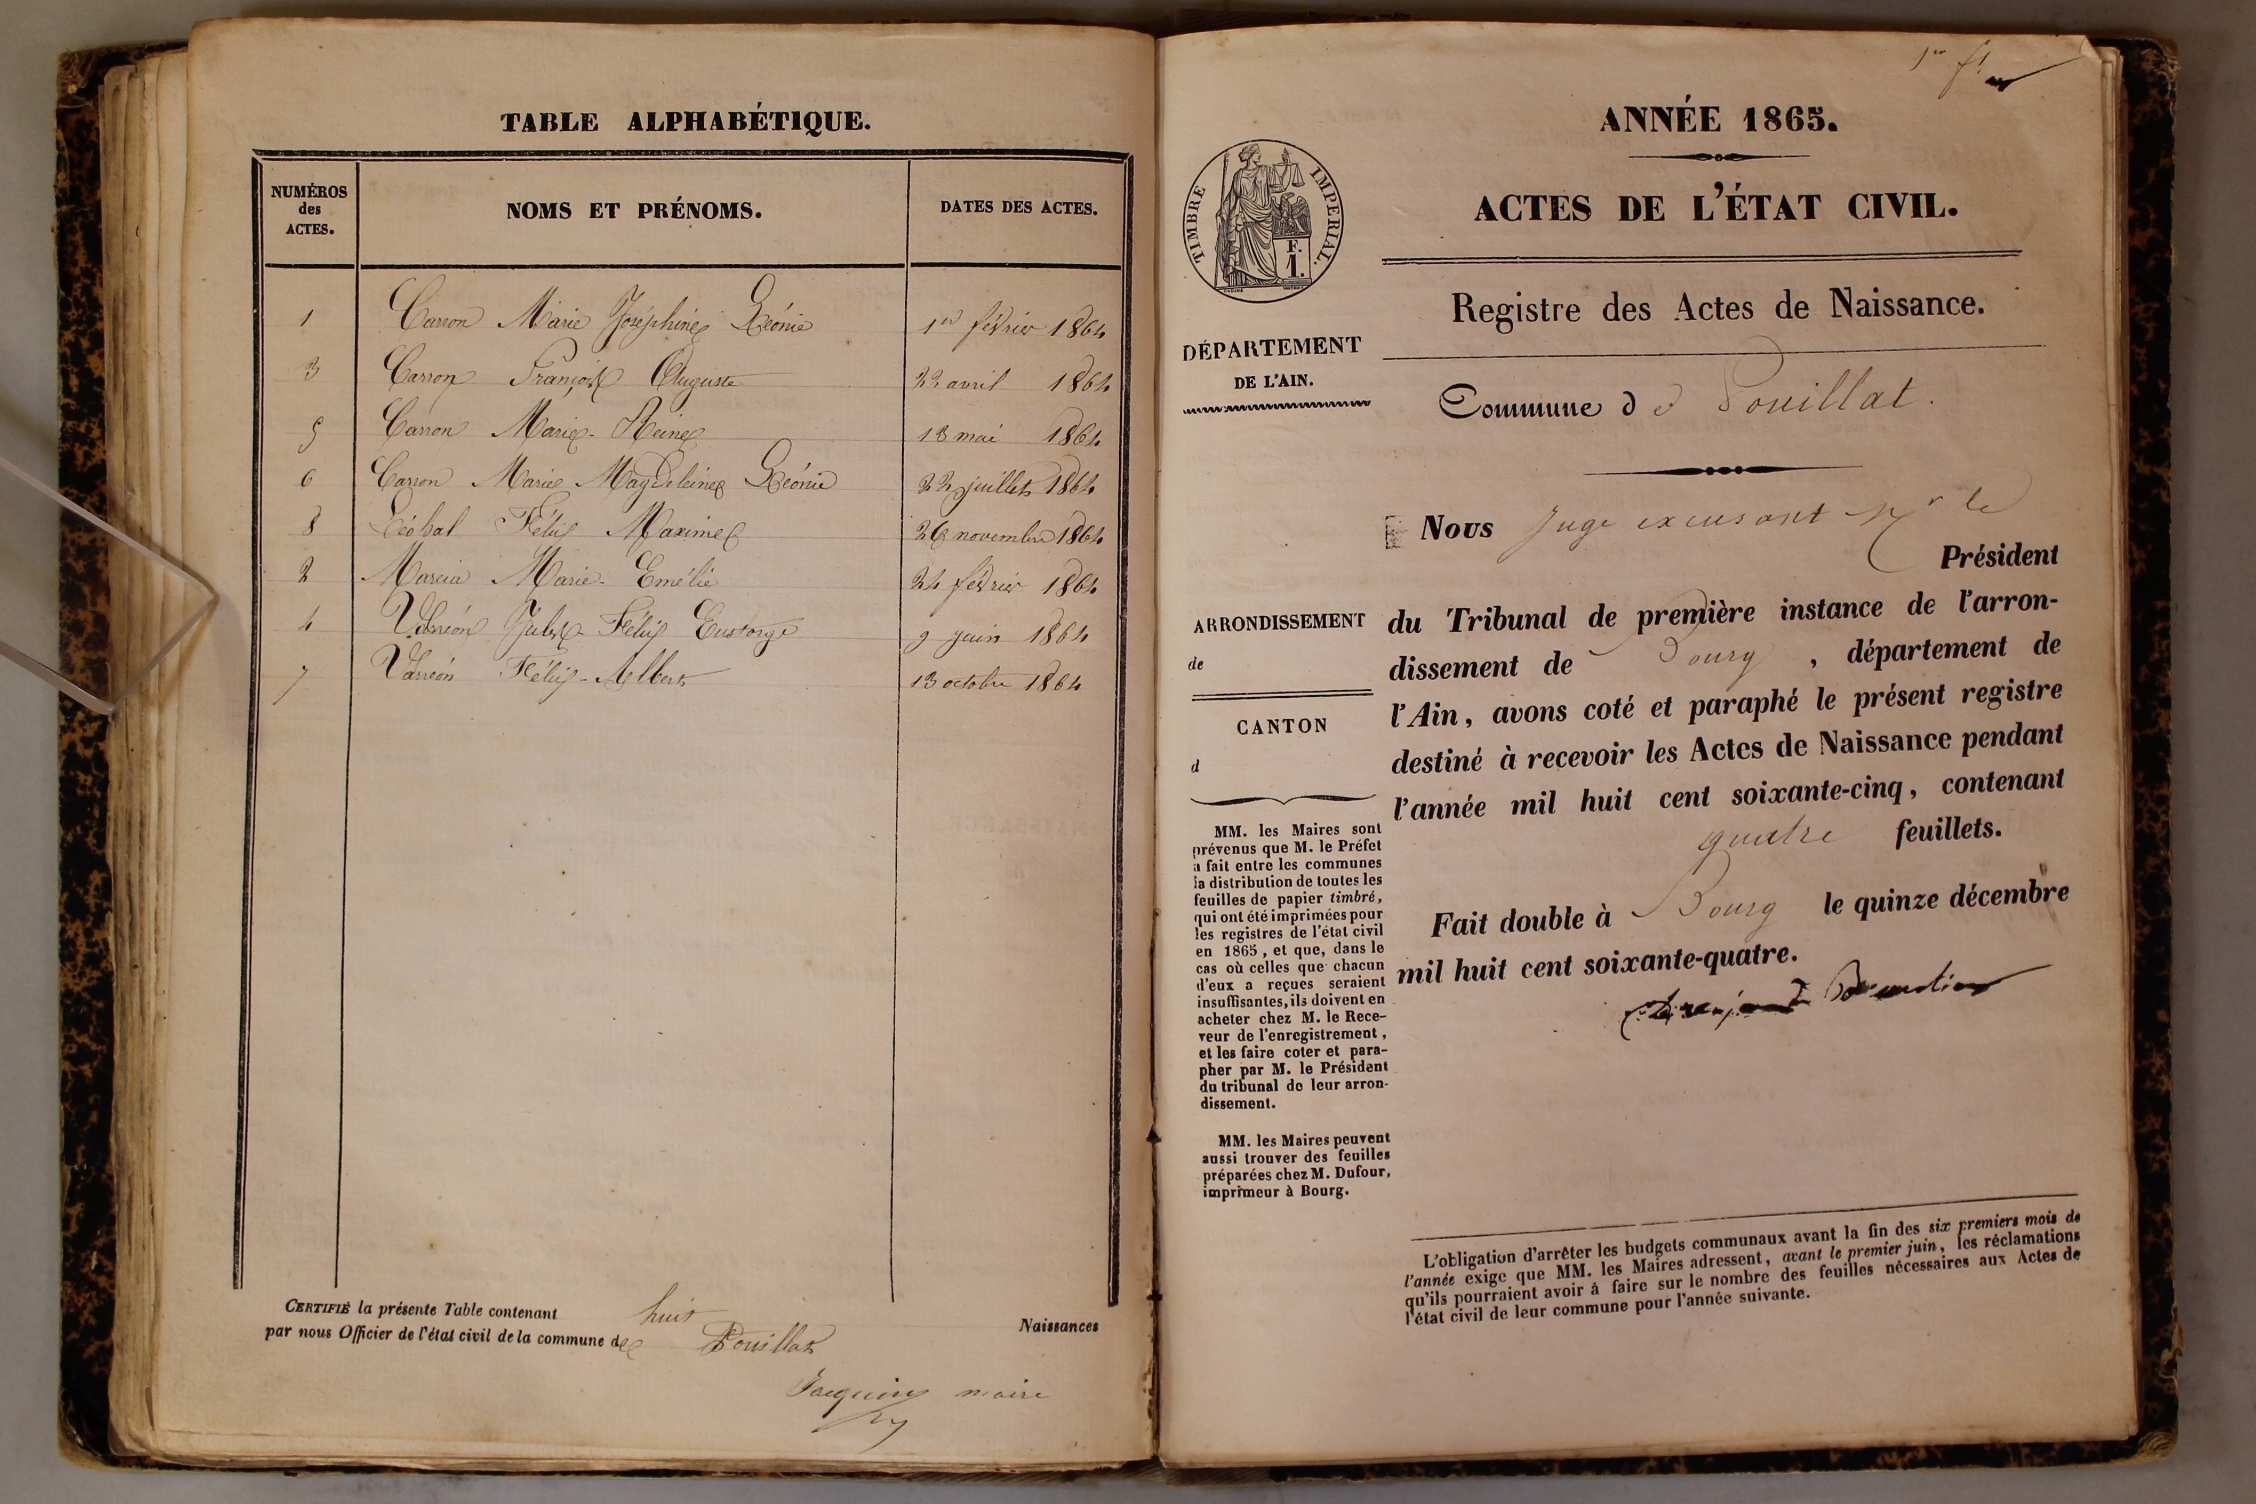 TABLE ALPHABÉTIQUE.
NUMÉROS des ACTES.
NOMS ET PRÉNOMS.
DATES DES ACTES.
1 Carron Marie Joséphine Léonie 1er février 1864
3 Carron François Auguste 22 avril 1864
5 Carron Marie-Reine 18 mai 1864
6 Carron Marie Magdeleine Léonie 22 juillet 1864
8 Félix Maxime 26 novembre 1864
2 Marcia Marie-Emélie 24 février 1864
4 Varréon Jules-Félix Eustorge 9 juin 1864
7 Varréon Félix-Albert 13 octobre 1864
CERTIFIÉ la présente Table contenant huit Naissances
par nous Officier de l'état civil de la commune de Pouillat
Jacquin maire
1er ft
ANNÉE 1865.
ACTES DE L'ÉTAT CIVIL.
TIMBRE IMPERIAL.
F.
1.
Registre des Actes de Naissance.
DÉPARTEMENT
DE L'AIN.
Commune de Pouillat.
Nous Juge excusant Mr le
Président
ARRONDISSEMENT
de
CANTON
d
du Tribunal de première instance de l'arron-
dissement de Bourg, département de
l'Ain, avons coté et paraphé le présent registre
destiné à recevoir les Actes de Naissance pendant
l'année mil huit cent soixante-cinq, contenant
quatre feuillets.
Fait double à Bourg le quinze décembre
mil huit cent soixante-quatre.
MM. les Maires sont
prévenus que M. le Préfet
a fait entre les communes
la distribution de toutes les
feuilles de papier timbré,
qui ont été imprimées pour
les registres de l'état civil
en 1865, et que, dans le
cas où celles que chacun
d'eux a reçues seraient
insuffisantes, ils doivent en
acheter chez M. le Rece-
veur de l'enregistrement,
et les faire coter et para-
pher par M. le Président
du tribunal de leur arron-
dissement.
MM. les Maires peuvent
aussi trouver des feuilles
préparées chez M. Dufour,
imprimeur à Bourg.
L'obligation d'arrêter les budgets communaux avant la fin des six premiers mois de
l'année exige que MM. les Maires adressent, avant le premier juin, les réclamations
qu'ils pourraient avoir à faire sur le nombre des feuilles nécessaires aux Actes de
l'état civil de leur commune pour l'année suivante.